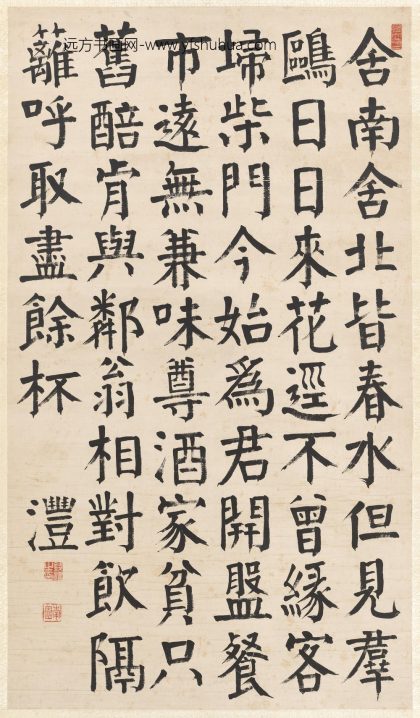 远方书画网-www.yfshuhua.com
舍南舍北皆春水但見羣
鷗日日來花逕不曾緣客
埽柴門今始爲君開盤餐
市遠無兼味尊酒家貧只
舊醅肯與鄰翁相對飲隔
籬呼取盡餘杯
灃